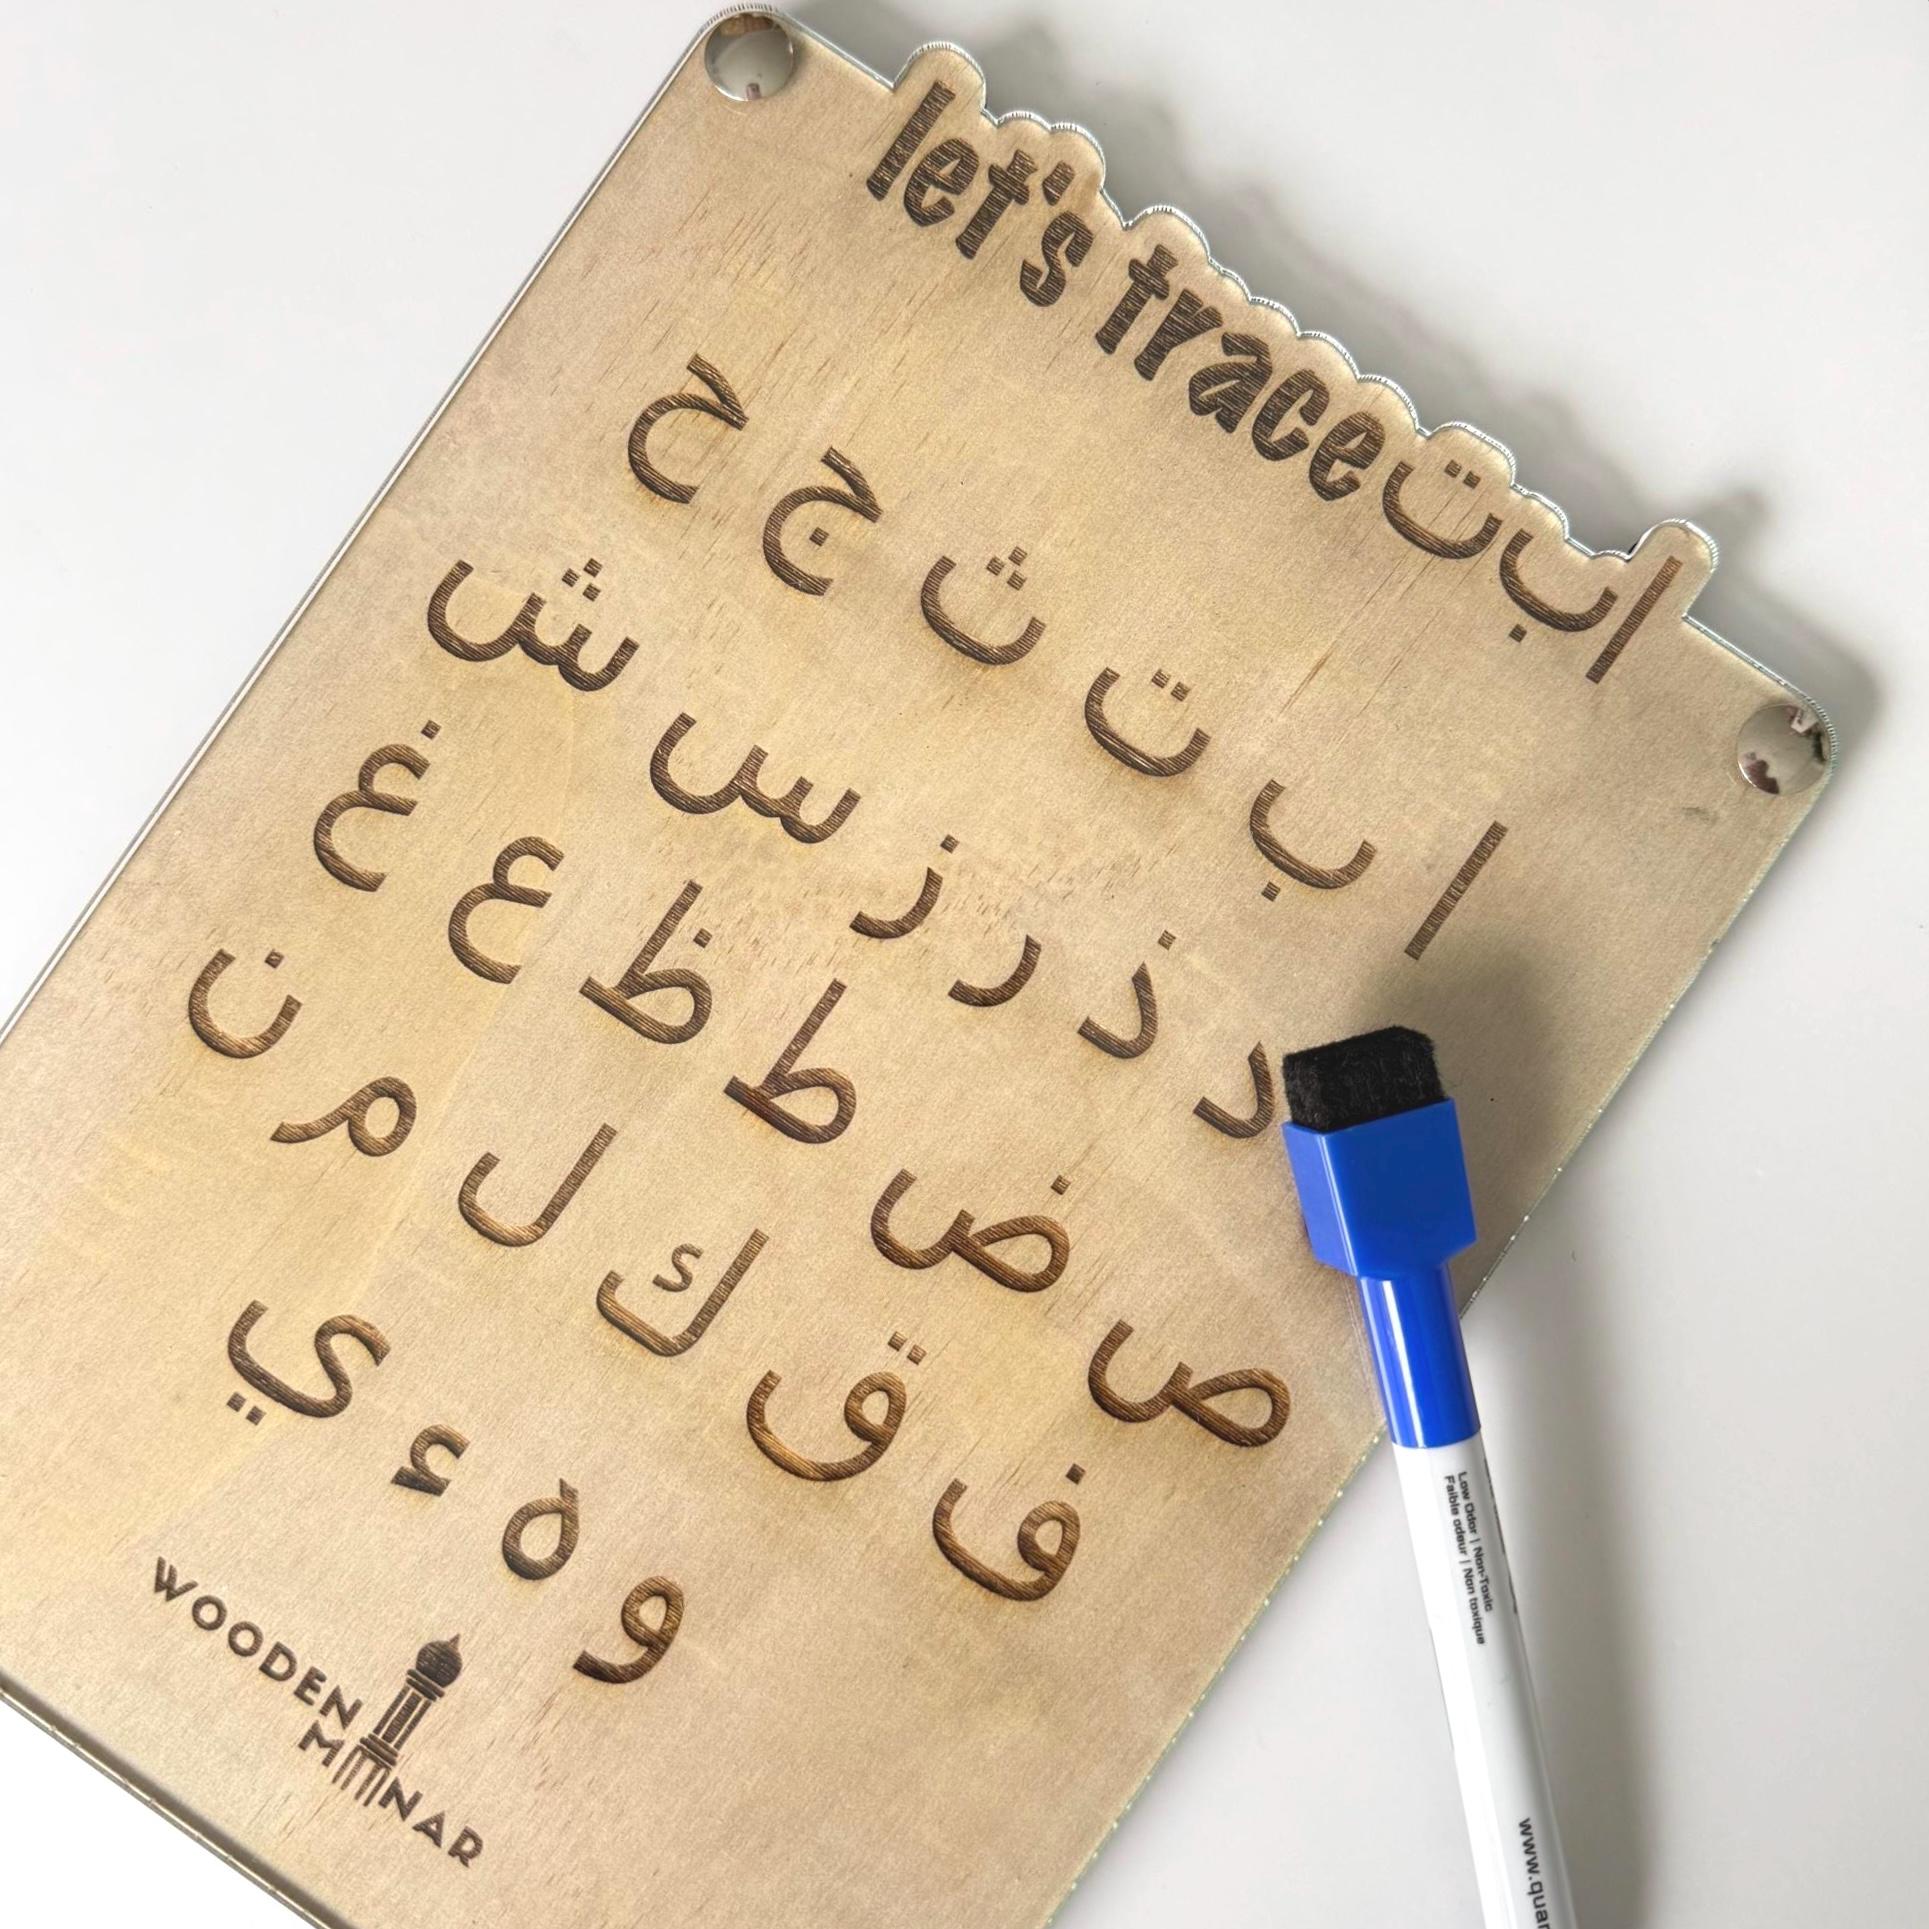 let's trace ا ب ت
ا ب ت ث ج ح
د ذ ر ز س ش
ص ض ط ظ ع غ
ف ق ك ل م ن
و ه ء ي
WOODEN
MINAR
Low Odor | Non-Toxic
Faible odeur | Non toxique